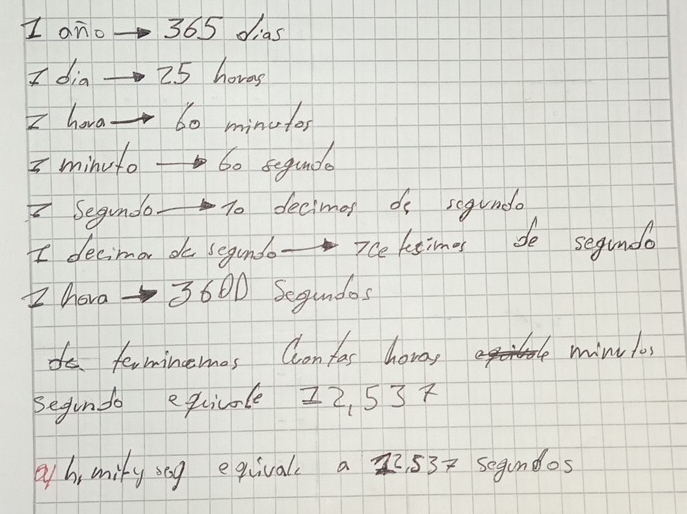 1 año → 365 dias
1 dia → 25 horas
1 hora → 60 minutos
1 minuto → 60 segundo
1 Segundo → 10 decimas de segundo
1 decima de segundo → de segundo
1 hora → 3600 Segundos
de terminemos Cuontas horas minutos
segundo equivale 12,537
a) h, mity seg equivale a 12,537 segundos